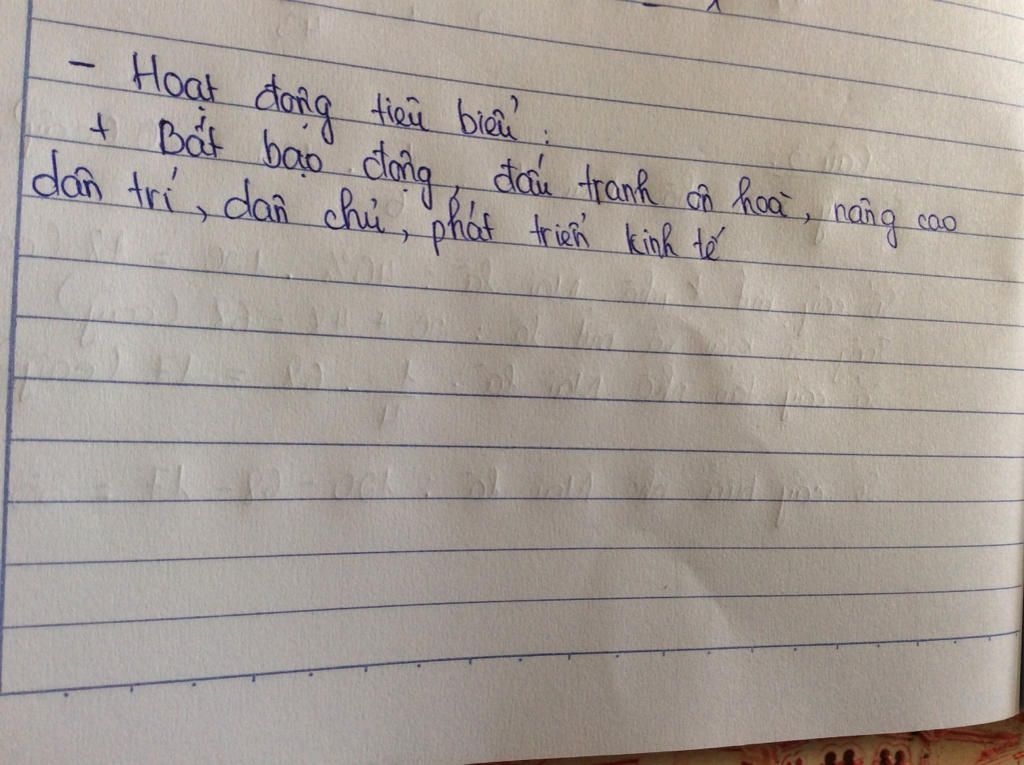 - Hoạt động tiêu biểu :
+ Bất bạo động, đấu tranh ôn hoà, nâng cao
dân trí, dân chủ, phát triển kinh tế